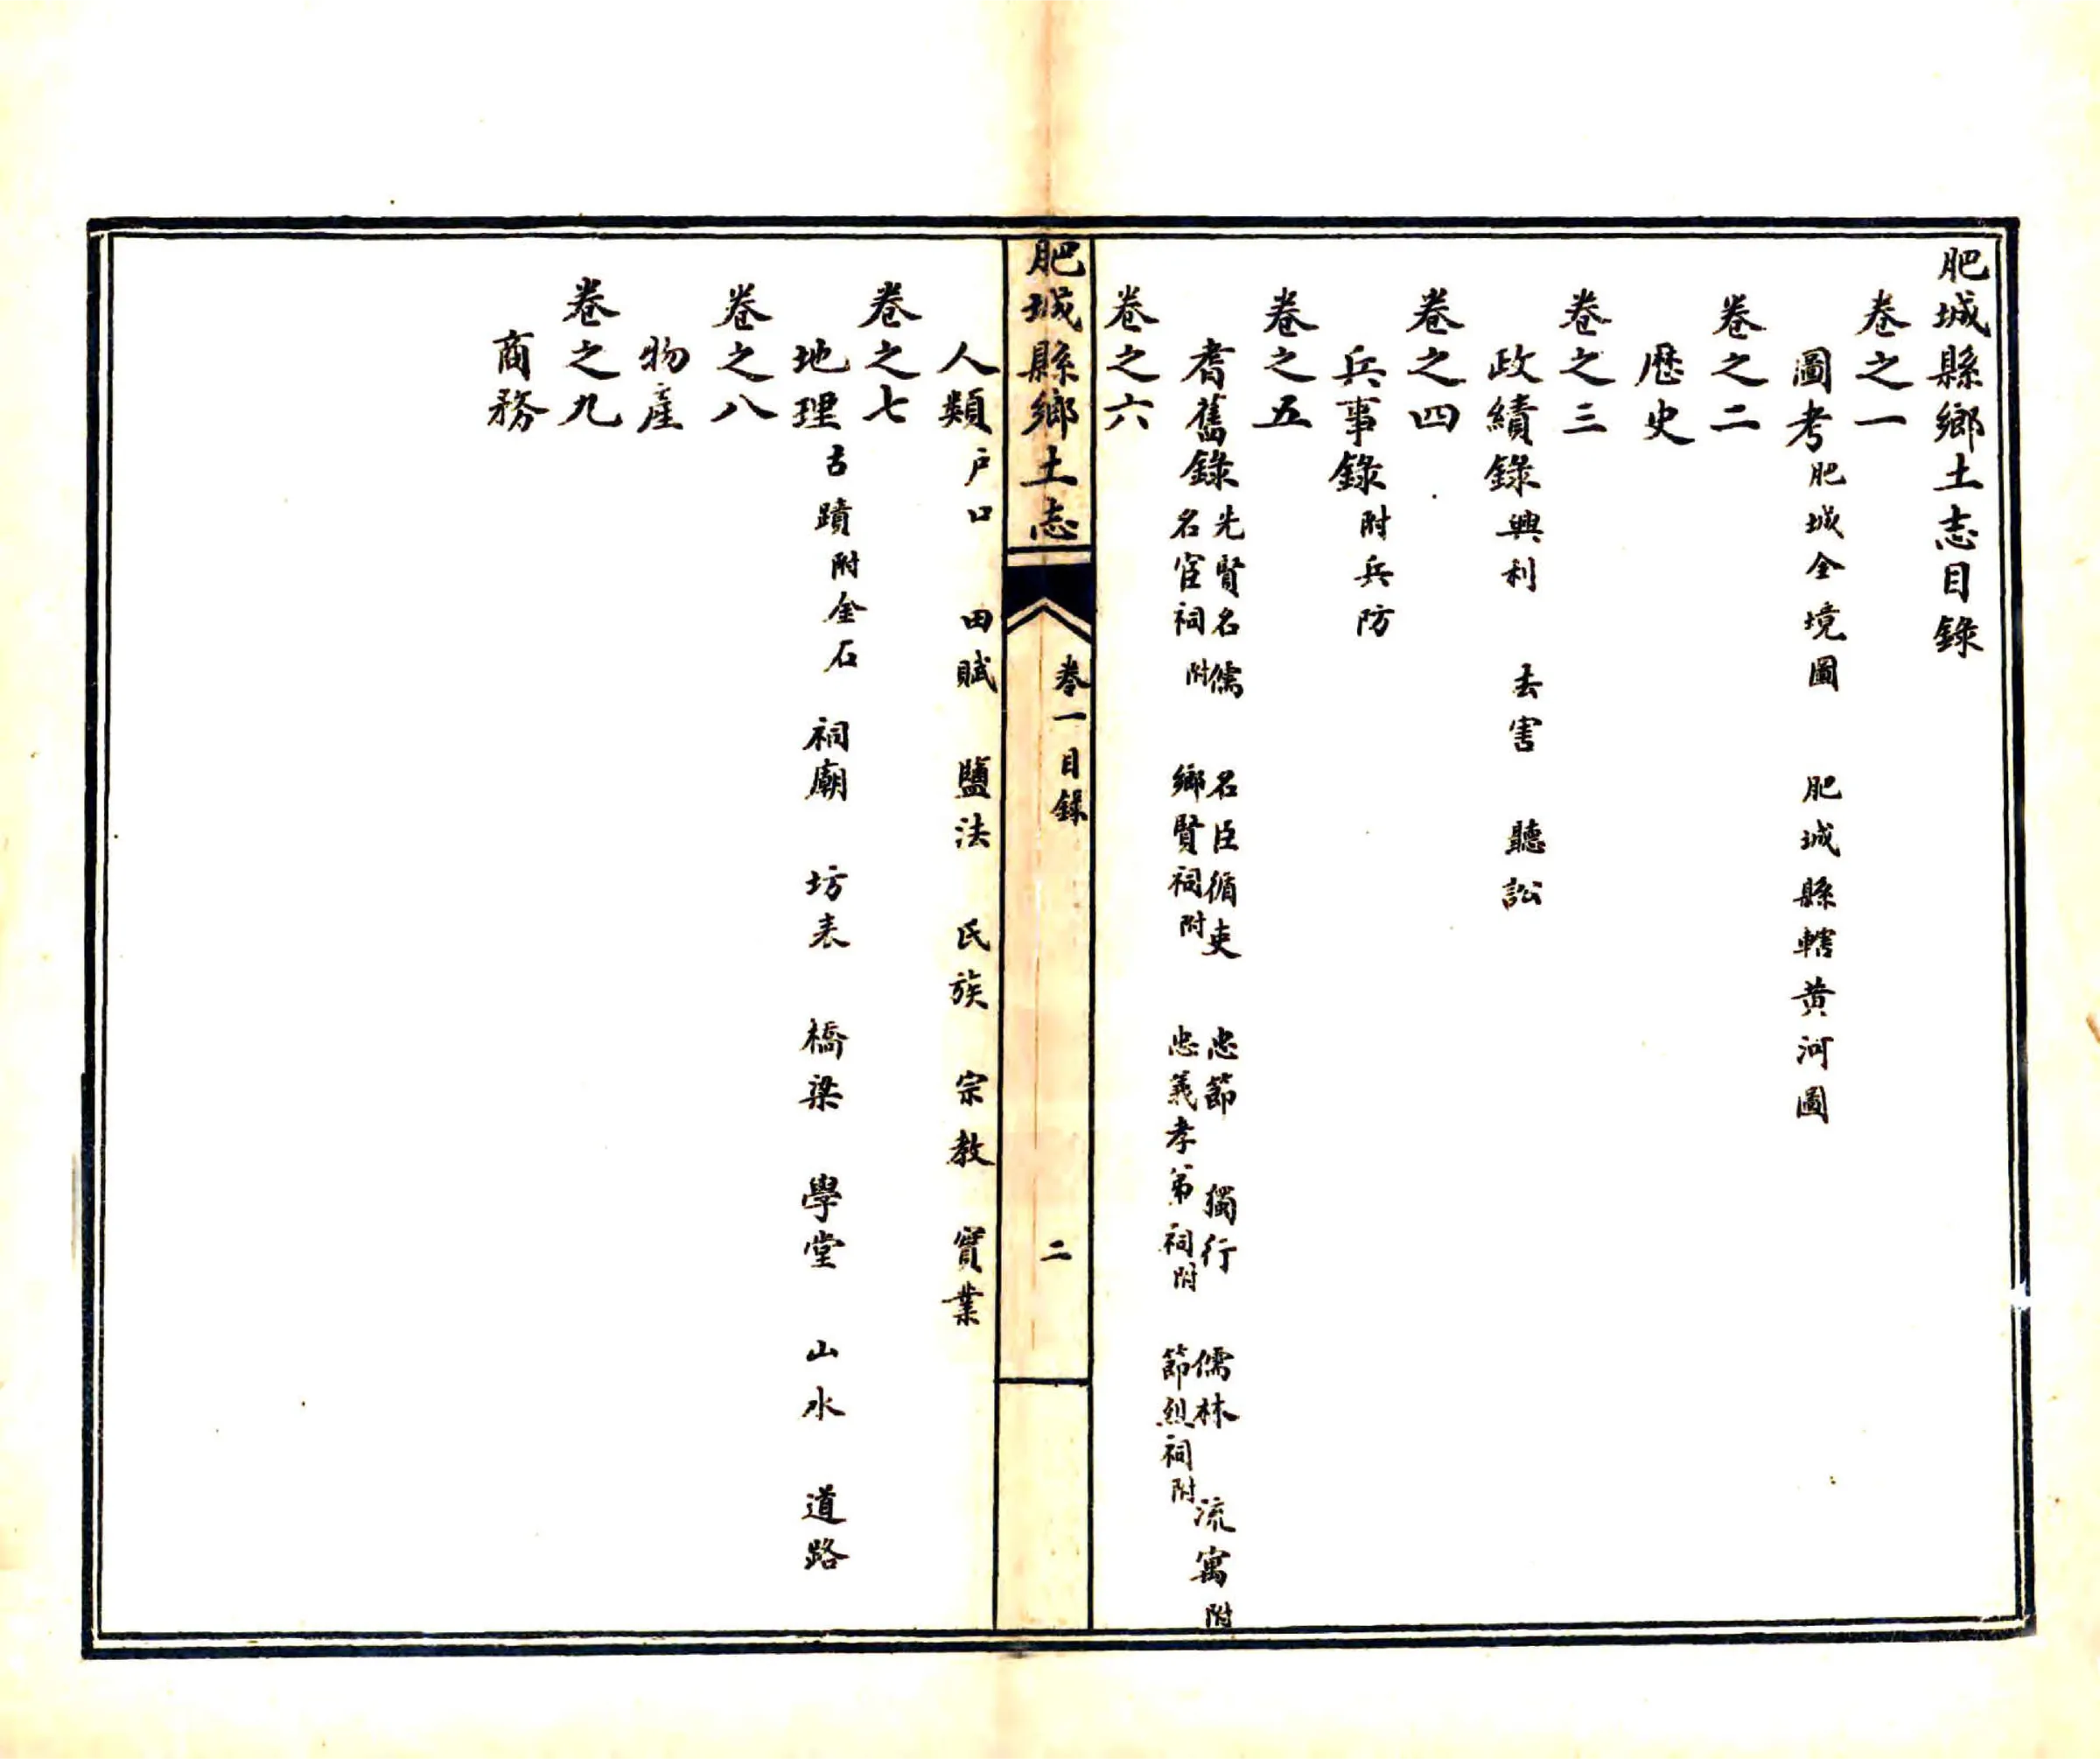 肥城縣鄉土志目錄
卷之一
圖考 肥城全境圖 肥城縣轄黃河圖
卷之二
歷史
卷之三
政績錄 興利 去害 聽訟
卷之四
兵事錄 附兵防
卷之五
耆舊錄 先賢名儒 名臣循吏 忠節 獨行 儒林 流寓附
名宦祠附 鄉賢祠附 忠義孝弟祠附 節烈祠附
卷之六
肥城縣鄉土志 卷一目錄 二
人類 户口 田賦 鹽法 氏族 宗教 實業
卷之七
地理 古蹟附金石 祠廟 坊表 橋梁 學堂 山水 道路
卷之八
物產
卷之九
商務